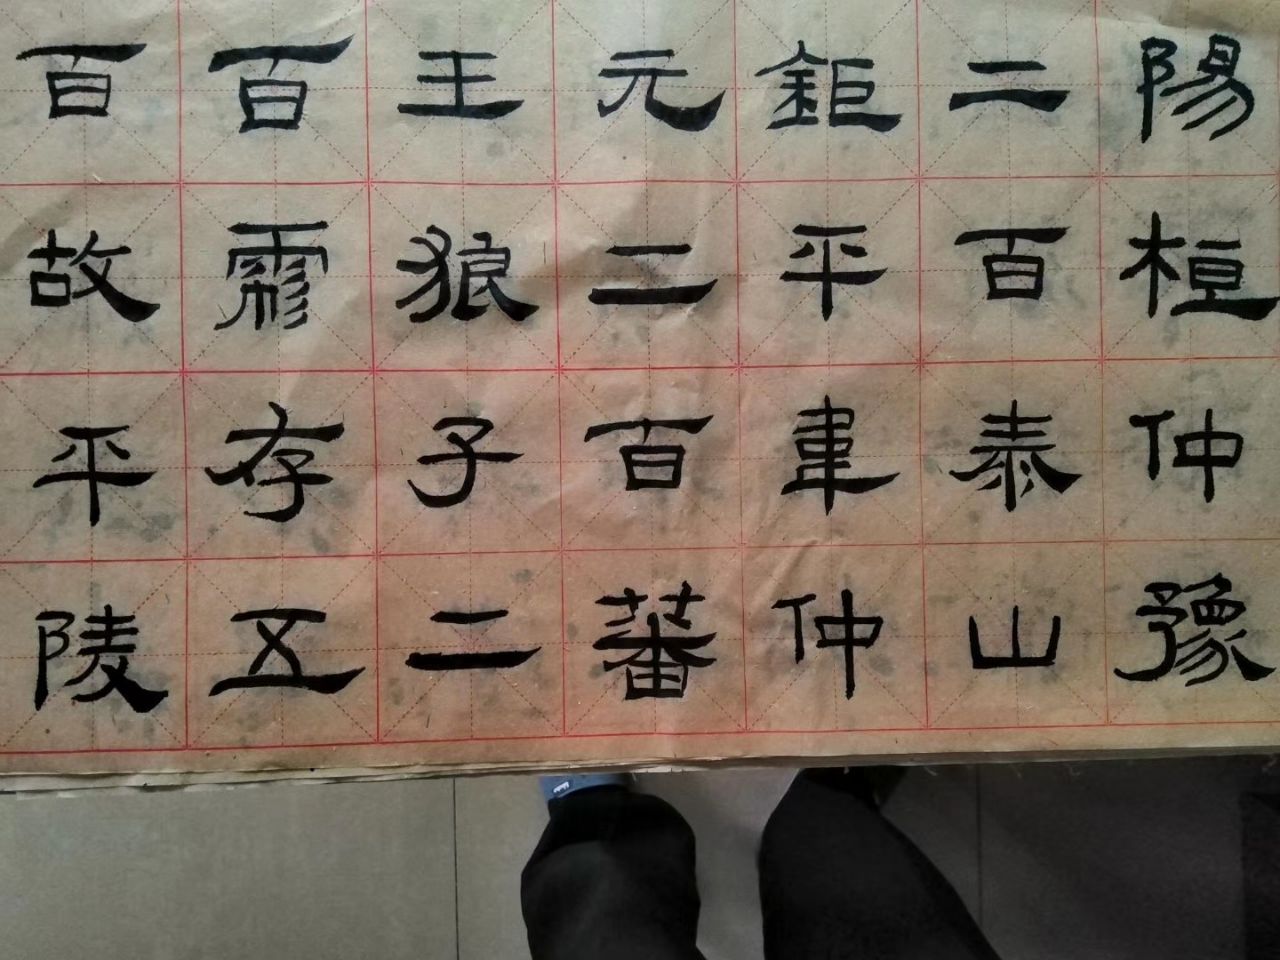 陽桓仲豫
二百泰山
鉅平韋仲
元二百蕃
王狼子二
百存五
百故平陵